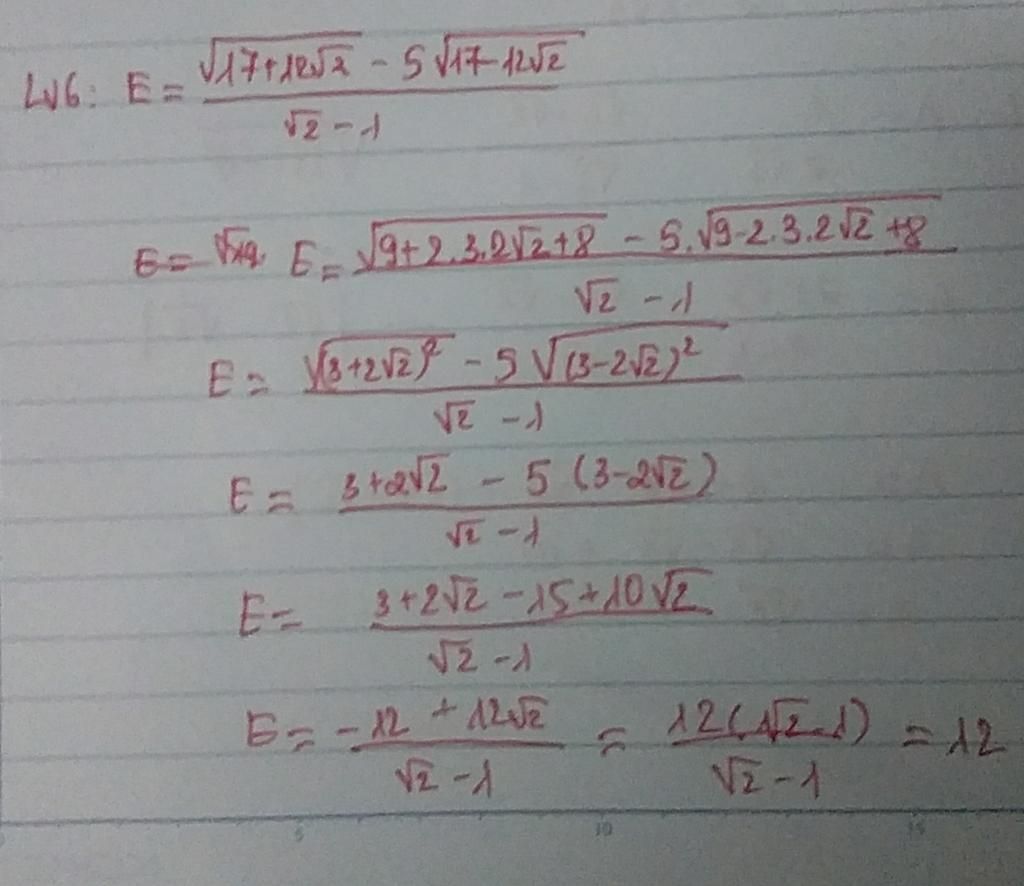 LV6: E = (√(17+12√2) - 5√(17-12√2)) / (√2 - 1)
E = E = (√(9+2.3.2√2+8) - 5.√(9-2.3.2√2+8)) / (√2 - 1)
E = (√(3+2√2)² - 5√(3-2√2)²) / (√2 - 1)
E = (3+2√2 - 5(3-2√2)) / (√2 - 1)
E = (3+2√2 - 15+10√2) / (√2 - 1)
E = (-12 + 12√2) / (√2 - 1) = 12(√2-1) / (√2 - 1) = 12
5 10 15